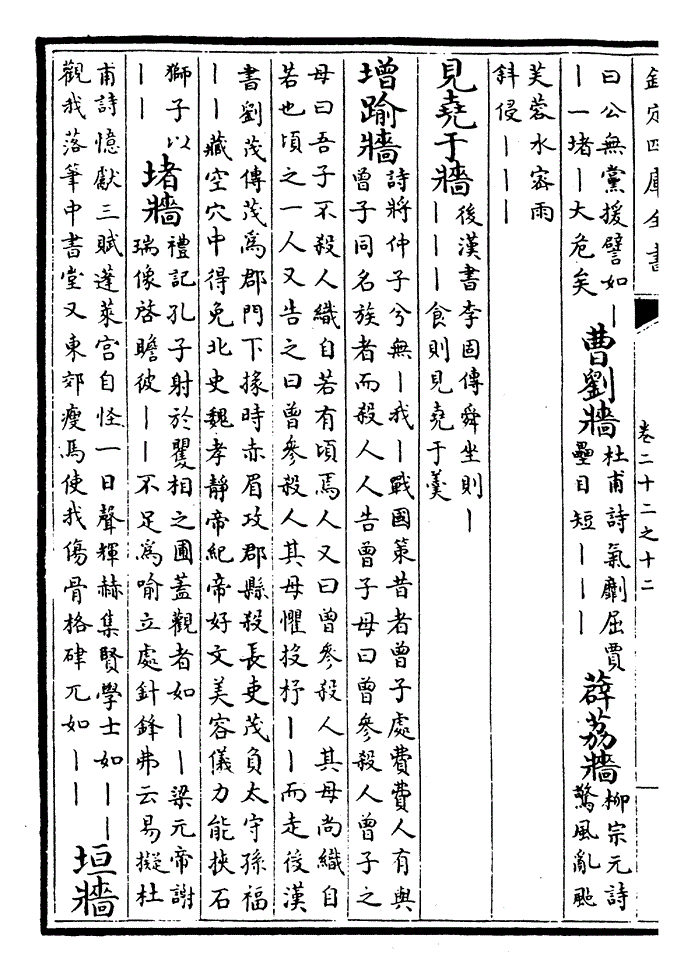 欽定四庫全書
卷二十二之十二
曰公無黨援譬如丨
丨一堵丨大危矣
曹劉牆
杜甫詩氣劘屈賈
壘目短丨丨丨
薜荔牆
柳宗元詩
驚風亂颭
芙蓉水宻雨
斜侵丨丨丨
見堯于牆
後漢書李固傳舜坐則丨
丨丨丨食則見堯于羹
增踰牆
詩將仲子兮無丨我丨戰國策昔者曾子處費費人有與
曾子同名族者而殺人人告曾子母曰曾參殺人曾子之
母曰吾子不殺人織自若有頃焉人又曰曾參殺人其母尚織自
若也頃之一人又告之曰曾參殺人其母懼投杼丨丨而走後漢
書劉茂傳茂為郡門下掾時赤眉攻郡縣殺長吏茂負太守孫福
丨丨藏空穴中得免北史魏孝靜帝紀帝好文美容儀力能挾石
獅子以
丨丨
堵牆
禮記孔子射於矍相之圃蓋觀者如丨丨梁元帝謝
瑞像啓瞻彼丨丨不足為喻立處針鋒弗云易擬杜
甫詩憶獻三賦蓬萊宫自怪一日聲輝赫集賢學士如丨丨
觀我落筆中書堂又東郊瘦馬使我傷骨格硉兀如丨丨
垣牆